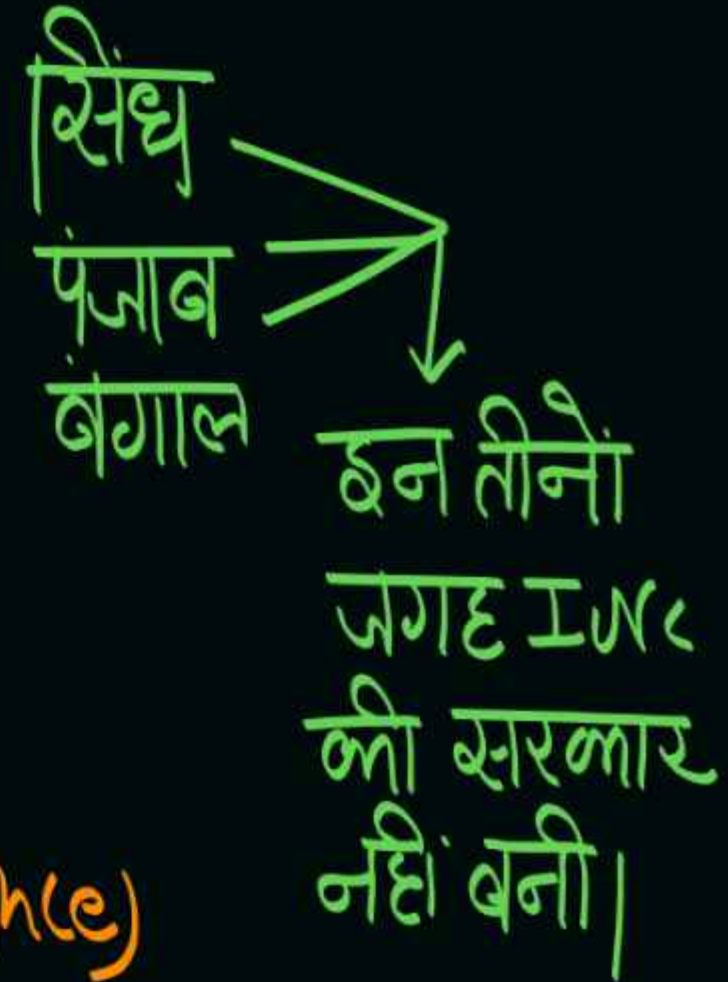 सिंध
पंजाब
बंगाल
इन तीनों
जगह INC
की सरकार
नहीं बनी।
nce)